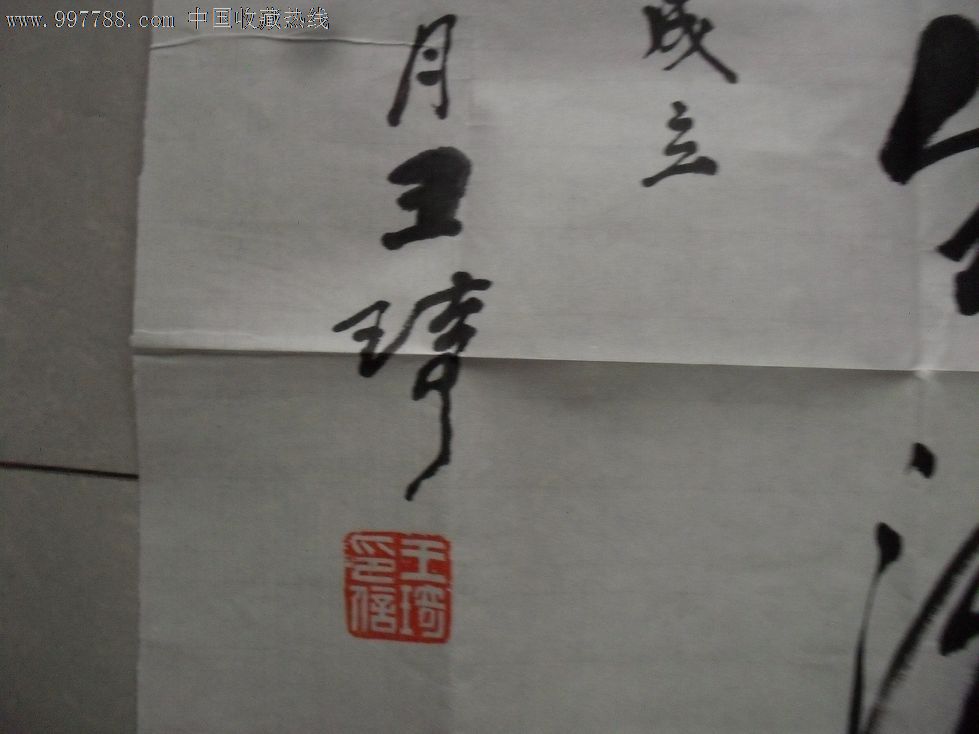 www.997788.com 中国收藏热线
成立
月王琦
王琦
印信